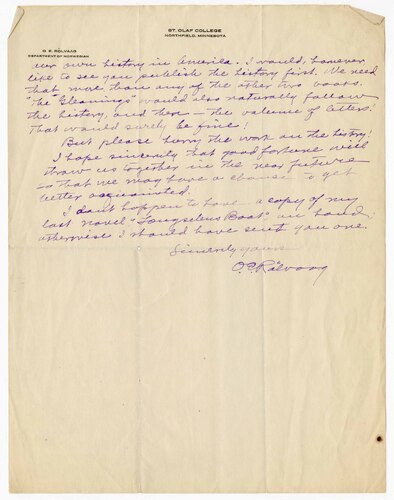 ST. OLAF COLLEGE
NORTHFIELD, MINNESOTA
O. E. ROLVAAG
DEPARTMENT OF NORWEGIAN
our own history in America. I would, however
like to see you publish the history first. We need
that more than any of the other two books.
"The Gleanings" would also naturally follow
the history, and then — the volume of letters.
That would surely be fine!
But please hurry the work on the history!
I hope sincerely that good fortune will
throw us together in the near future
— so that we may have a chance to get
better acquainted.
I don't happen to have a copy of my
last novel "Longselens Baat" on hand,
otherwise I should have sent you one.
Sincerely yours
O. E. Rölvaag